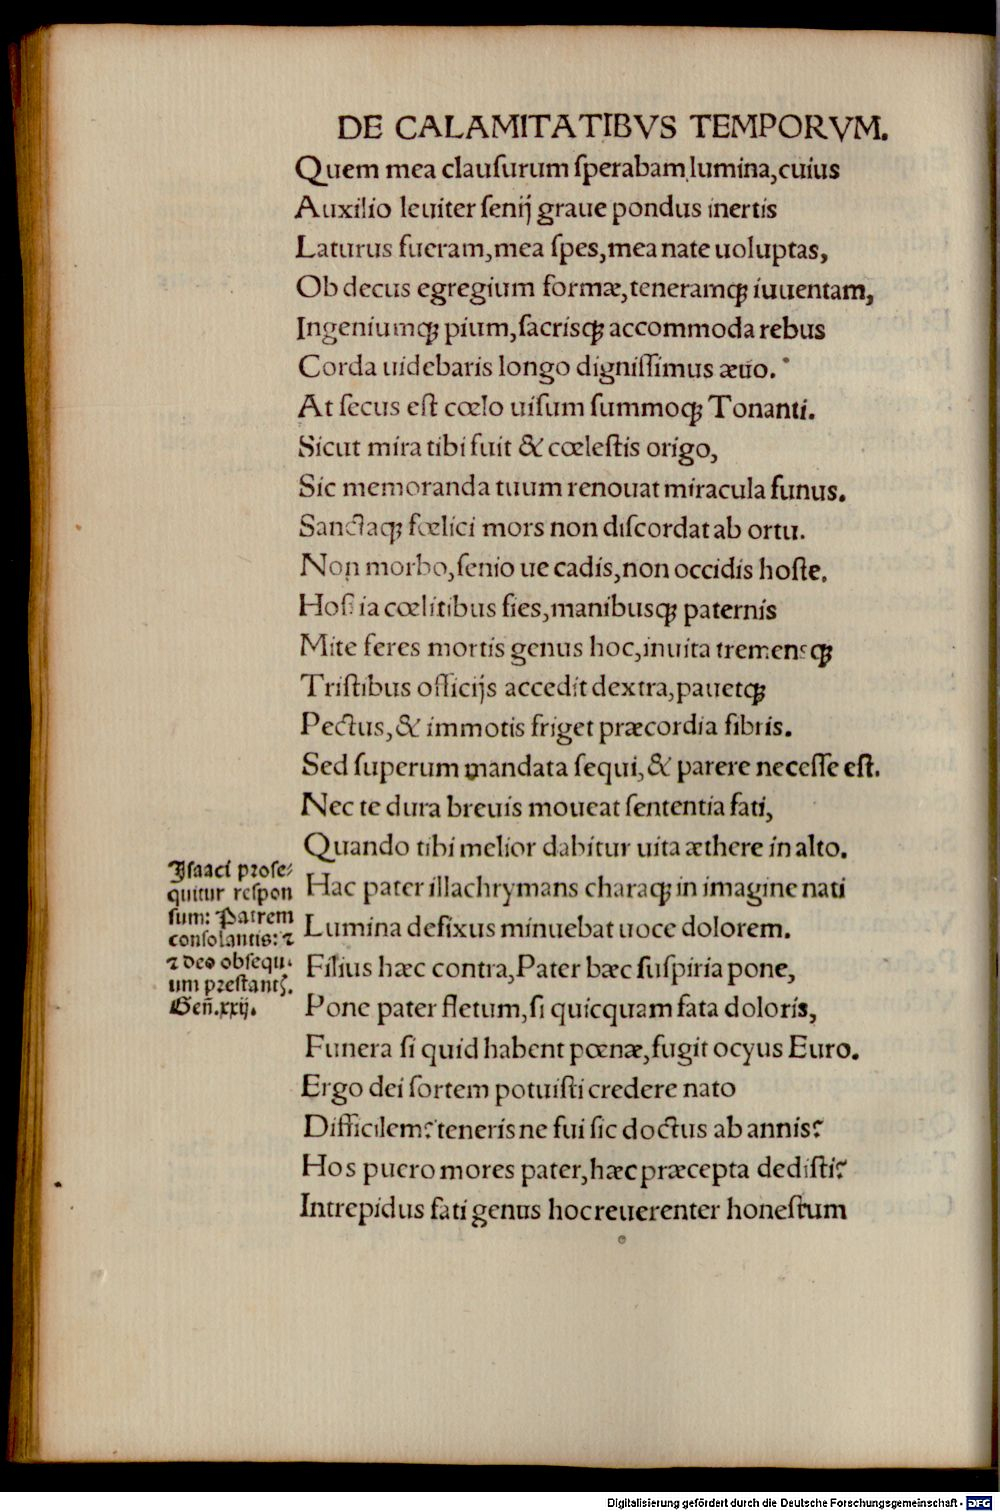 DE CALAMITATIBVS TEMPORVM.
Quem mea clauſurum ſperabam lumina,cuius
Auxilio leuiter ſenij graue pondus inertis
Laturus fueram,mea ſpes,mea nate uoluptas,
Ob decus egregium formæ,teneramq; iuuentam,
Ingeniumq; pium,ſacrisq; accommoda rebus
Corda uidebaris longo digniſſimus æuo.
At ſecus eſt cœlo uiſum ſummoq; Tonanti.
Sicut mira tibi fuit & cœleſtis origo,
Sic memoranda tuum renouat miracula funus.
Sanctaq; fœlici mors non diſcordat ab ortu.
Non morbo,ſenio ue cadis,non occidis hoſte.
Hoſtia cœlitibus fies,manibusq; paternis
Mite feres mortis genus hoc,inuita tremensq;
Triſtibus officijs accedit dextra,pauetq;
Pectus,& immotis friget præcordia fibris.
Sed ſuperum mandata ſequi,& parere neceſſe eſt.
Nec te dura breuis moueat ſententia fati,
Quando tibi melior dabitur uita æthere in alto.
Hac pater illachrymans charaq; in imagine nati
Lumina defixus minuebat uoce dolorem.
Filius hæc contra,Pater hæc ſuſpiria pone,
Pone pater fletum,ſi quicquam fata doloris,
Funera ſi quid habent pœnæ,fugit ocyus Euro.
Ergo dei ſortem potuiſti credere nato
Difficilem?teneris ne fui ſic doctus ab annis?
Hos puero mores pater,hæc præcepta dediſti?
Intrepidus fati genus hoc reuerenter honeſtum
Iſaaci proſe⸗
quitur reſpon
ſum: Patrem
conſolantis: ⁊
⁊ deo obſequi⸗
um preſtantꝭ.
Geñ.xxij.
Digitalisierung gefördert durch die Deutsche Forschungsgemeinschaft - DFG